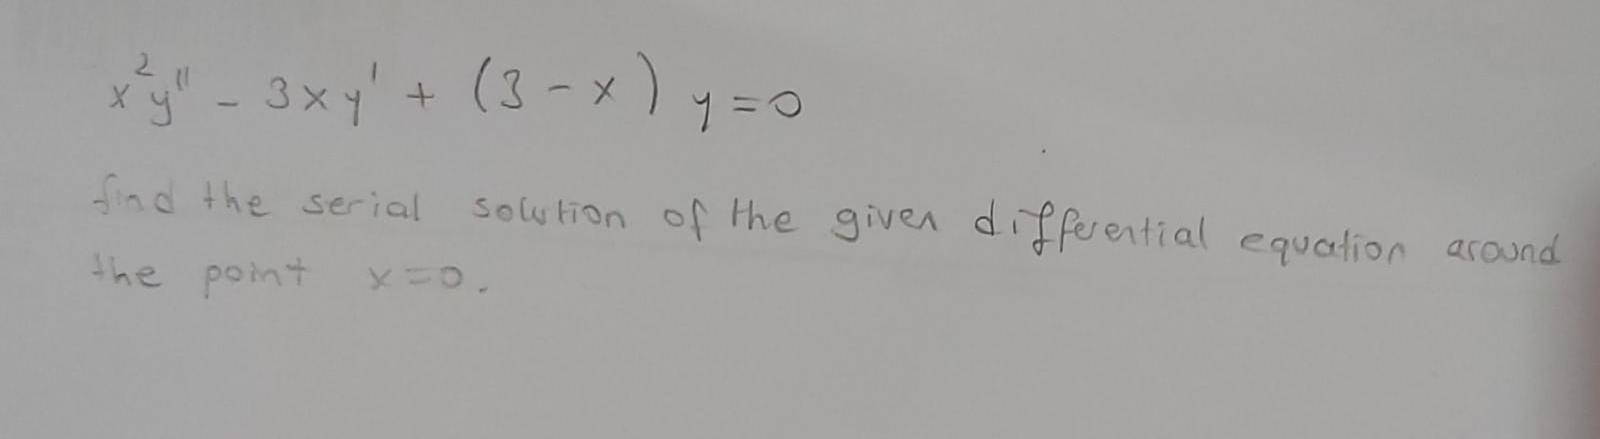 x²y'' - 3xy' + (3-x) y=0
find the serial solution of the given differential equation around
the point x=0.